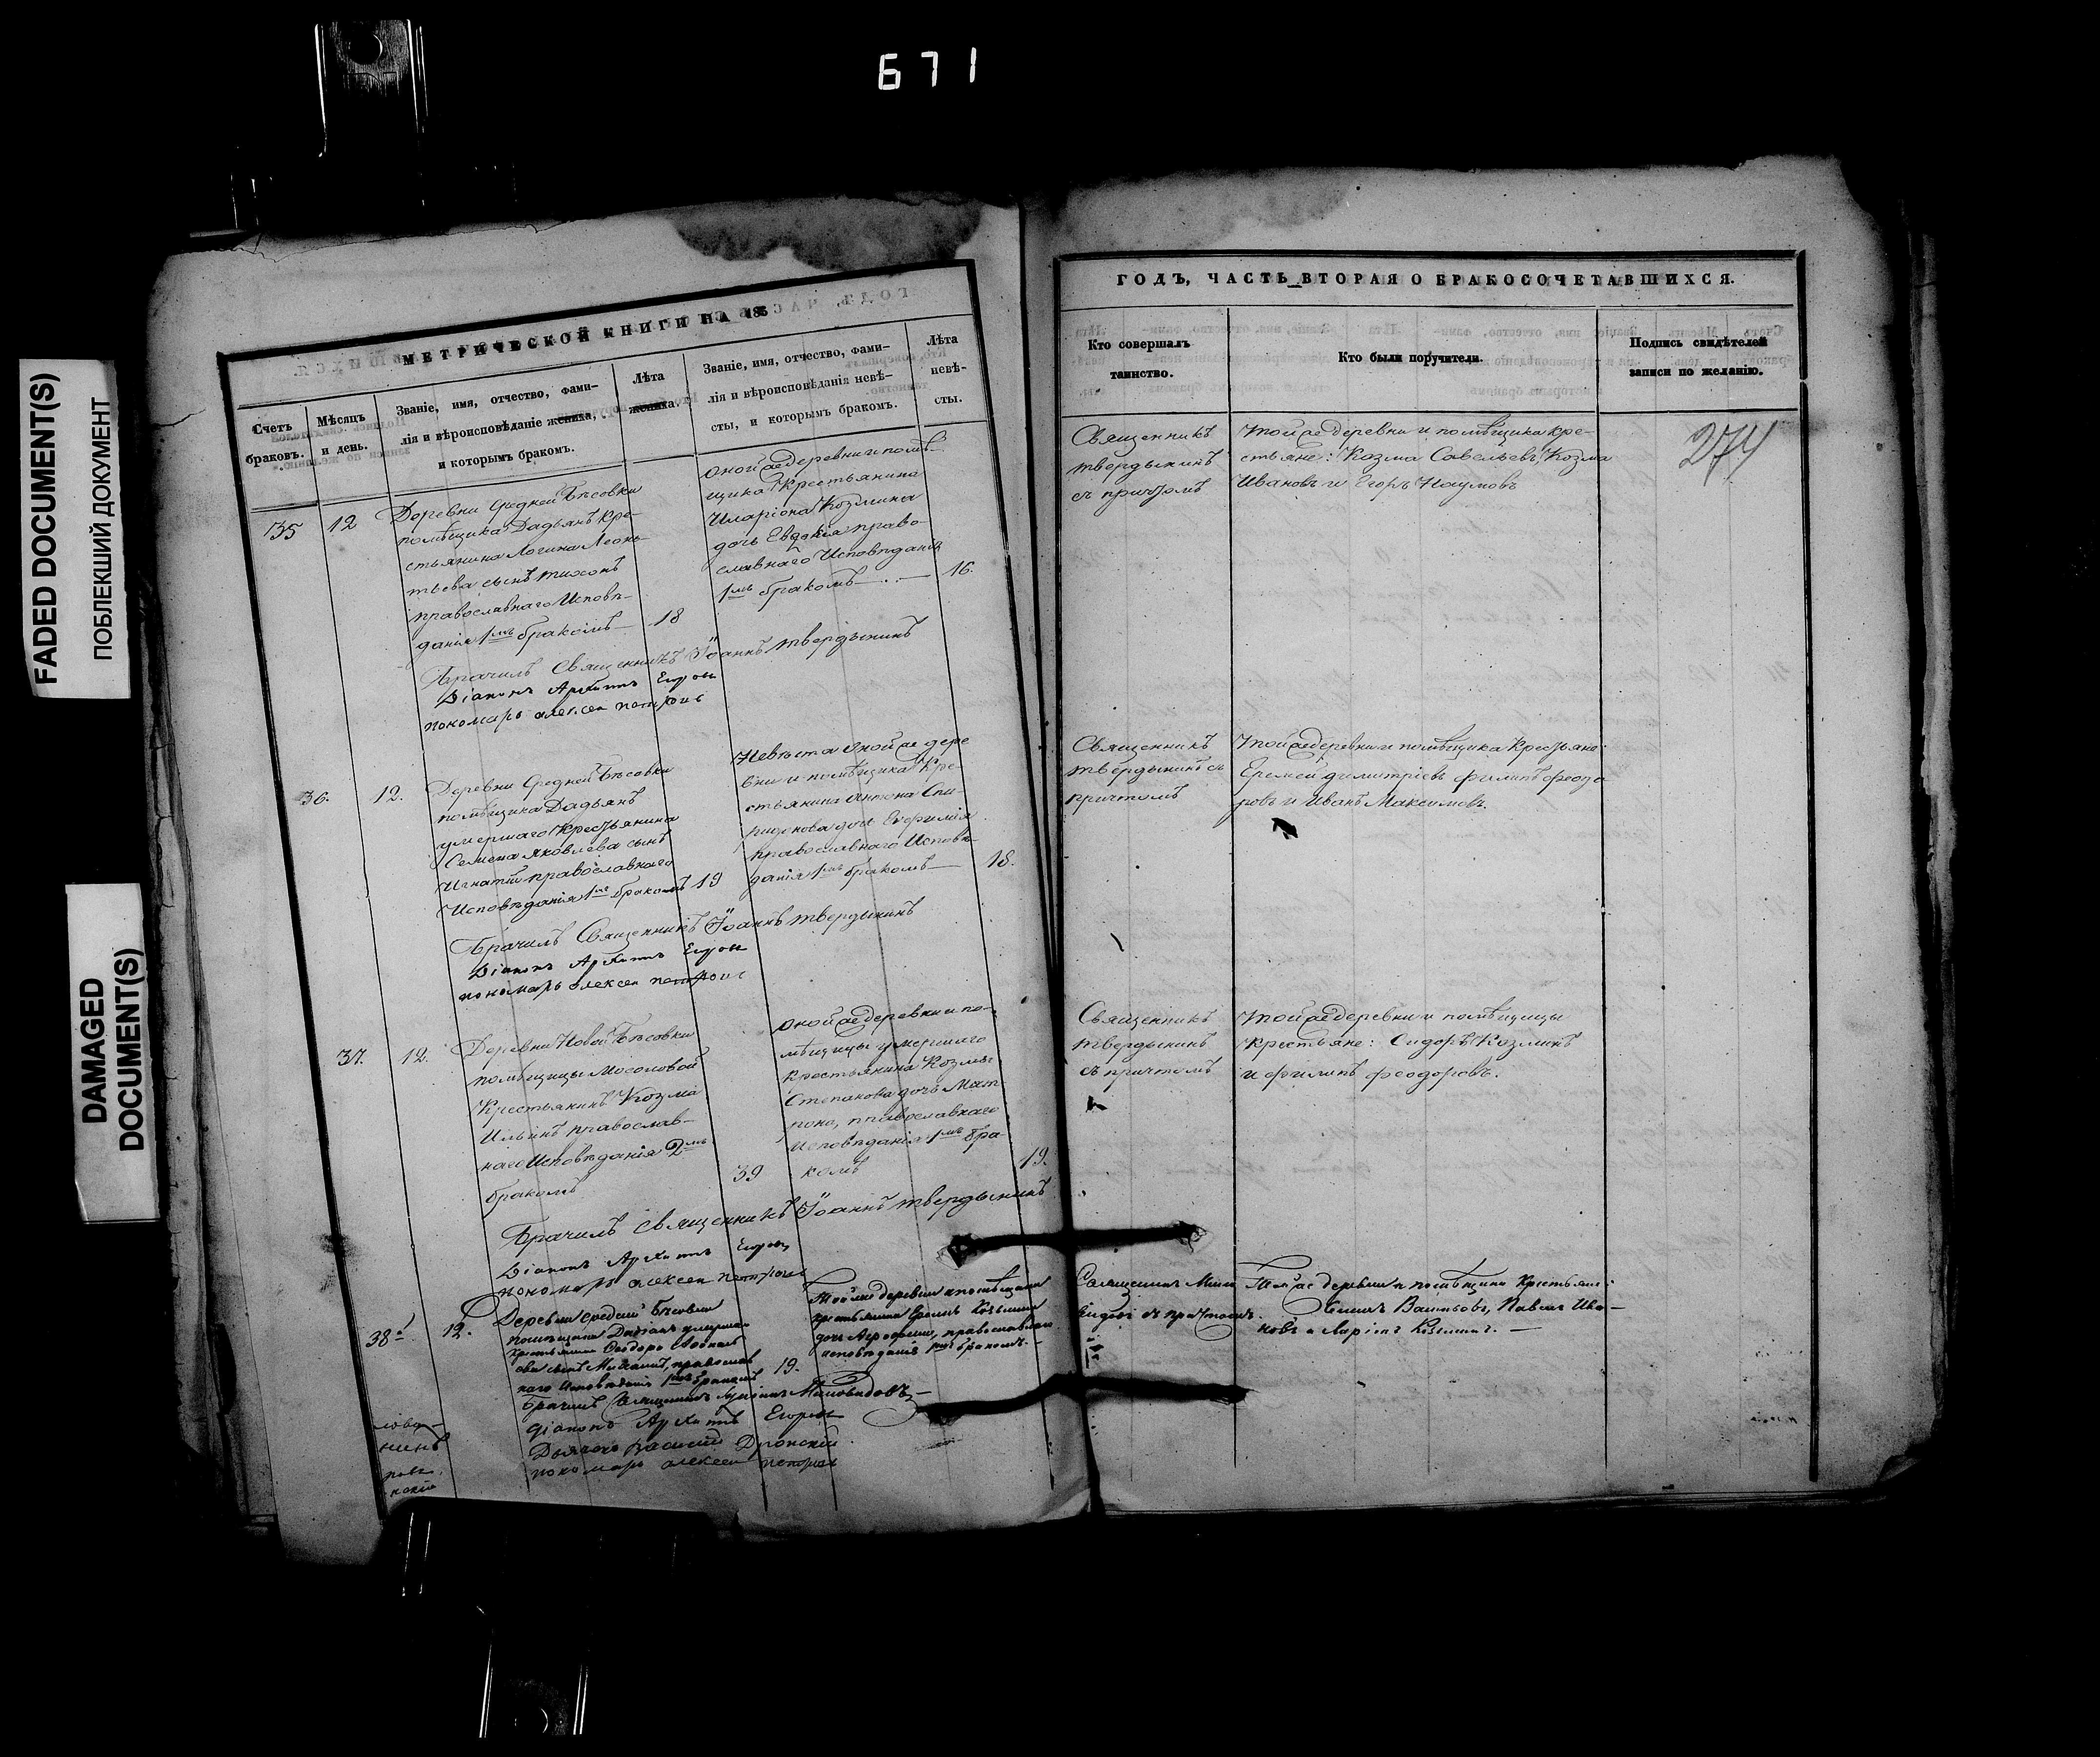 671
FADED DOCUMENT(S)
ПОБЛЕКШИЙ ДОКУМЕНТ
DAMAGED
DOCUMENT(S)
МЕТРИЧЕСКОЙ КНИГИ НА 185
Счетъ
браковъ.
Мѣсяцъ
и день.
Званіе, имя, отчество, фами-
лія и вѣроисповѣданіе жениха,
и которымъ бракомъ.
Лѣта
жениха.
Званіе, имя, отчество, фами-
лія и вѣроисповѣданія невѣ-
сты, и которымъ бракомъ.
Лѣта
невѣ-
сты.
35
12
Деревни Средней Бѣсовки
помѣщика Дадьянъ кре-
стьянина Логина Леонь-
тьева сынъ Тихонъ
православнаго Исповѣ-
данія 1мъ бракомъ
18
оной же деревни и помѣ-
щика Крестьянина
Иларіона Козмина
дочь Евдокія право-
славнаго Исповѣданія
1мъ бракомъ
16.
Брачилъ Священникъ Іоаннъ Твердынинъ
Діаконъ Архипъ Егоровъ
пономарь алексей петровъ
36.
12.
Деревни Средней Бѣсовки
помѣщика Дадьянъ
умершаго Крестьянина
Семена Яковлева сынъ
Игнатій православнаго
Исповѣданія 1мъ бракомъ
19
Невѣста оной же дере
вни и помѣщика Кре-
стьянина Антона Спи-
ридонова дочь Евфимія
православнаго Исповѣ-
данія 1мъ бракомъ
18.
Брачилъ Священникъ Іоаннъ Твердынинъ
Діаконъ Архипъ Егоровъ
пономарь алексей петровъ
37.
12.
Деревни Новой Бѣсовки
помѣщицы Мосоловой
Крестьянинъ Козма
Ильинъ православ-
наго Исповѣданія 2мъ
бракомъ
39
оной же деревни и по-
мѣщицы умершаго
Крестьянина Козмы
Степанова дочь Мат
рона, православнаго
Исповѣданія 1мъ бра-
комъ
19.
Брачилъ священникъ Іоаннъ Твердынинъ
Діаконъ Архипъ Егоровъ
пономарь алексей петровъ
38
12.
Деревни Средней Бѣсовки
помѣщика Дадьянъ умершаго
крестьянина Ѳеодора
сынъ православ
наго Исповѣданія 1мъ бракомъ
19.
Той же деревни и помѣщика
крестьянина Козьмина
дочь православнаго
исповѣданія 1мъ бракомъ.
Брачилъ Священникъ Миловидовъ
діаконъ Архипъ Егоровъ
Дьячекъ Василій
пономарь алексей петровъ
ГОДЪ, ЧАСТЬ ВТОРАЯ О БРАКОСОЧЕТАВШИХСЯ.
Кто совершалъ
таинство.
Кто были поручители.
Подпись свидѣтелей
записи по желанію.
274
Священникъ
твердынинъ
съ причтомъ
той же деревни и помѣщика кре-
стьяне: Козма Савельевъ, Козма
Ивановъ и Егоръ Наумовъ
Священникъ
твердынинъ съ
причтомъ
той же деревни и помѣщика Крестьяне:
Еремей димитріевъ филипъ феодо
ровъ и Иванъ Максимовъ.
Священникъ
твердынинъ
съ причтомъ
той же деревни и помѣщицы
крестьяне: Сидоръ Козминъ
и филипъ феодоровъ.
Священникъ Мило
видовъ съ причтомъ.
Той же деревни и помѣщика Крестьяне:
Васильевъ, Павелъ Ива-
новъ и Ларіонъ Козьминъ.